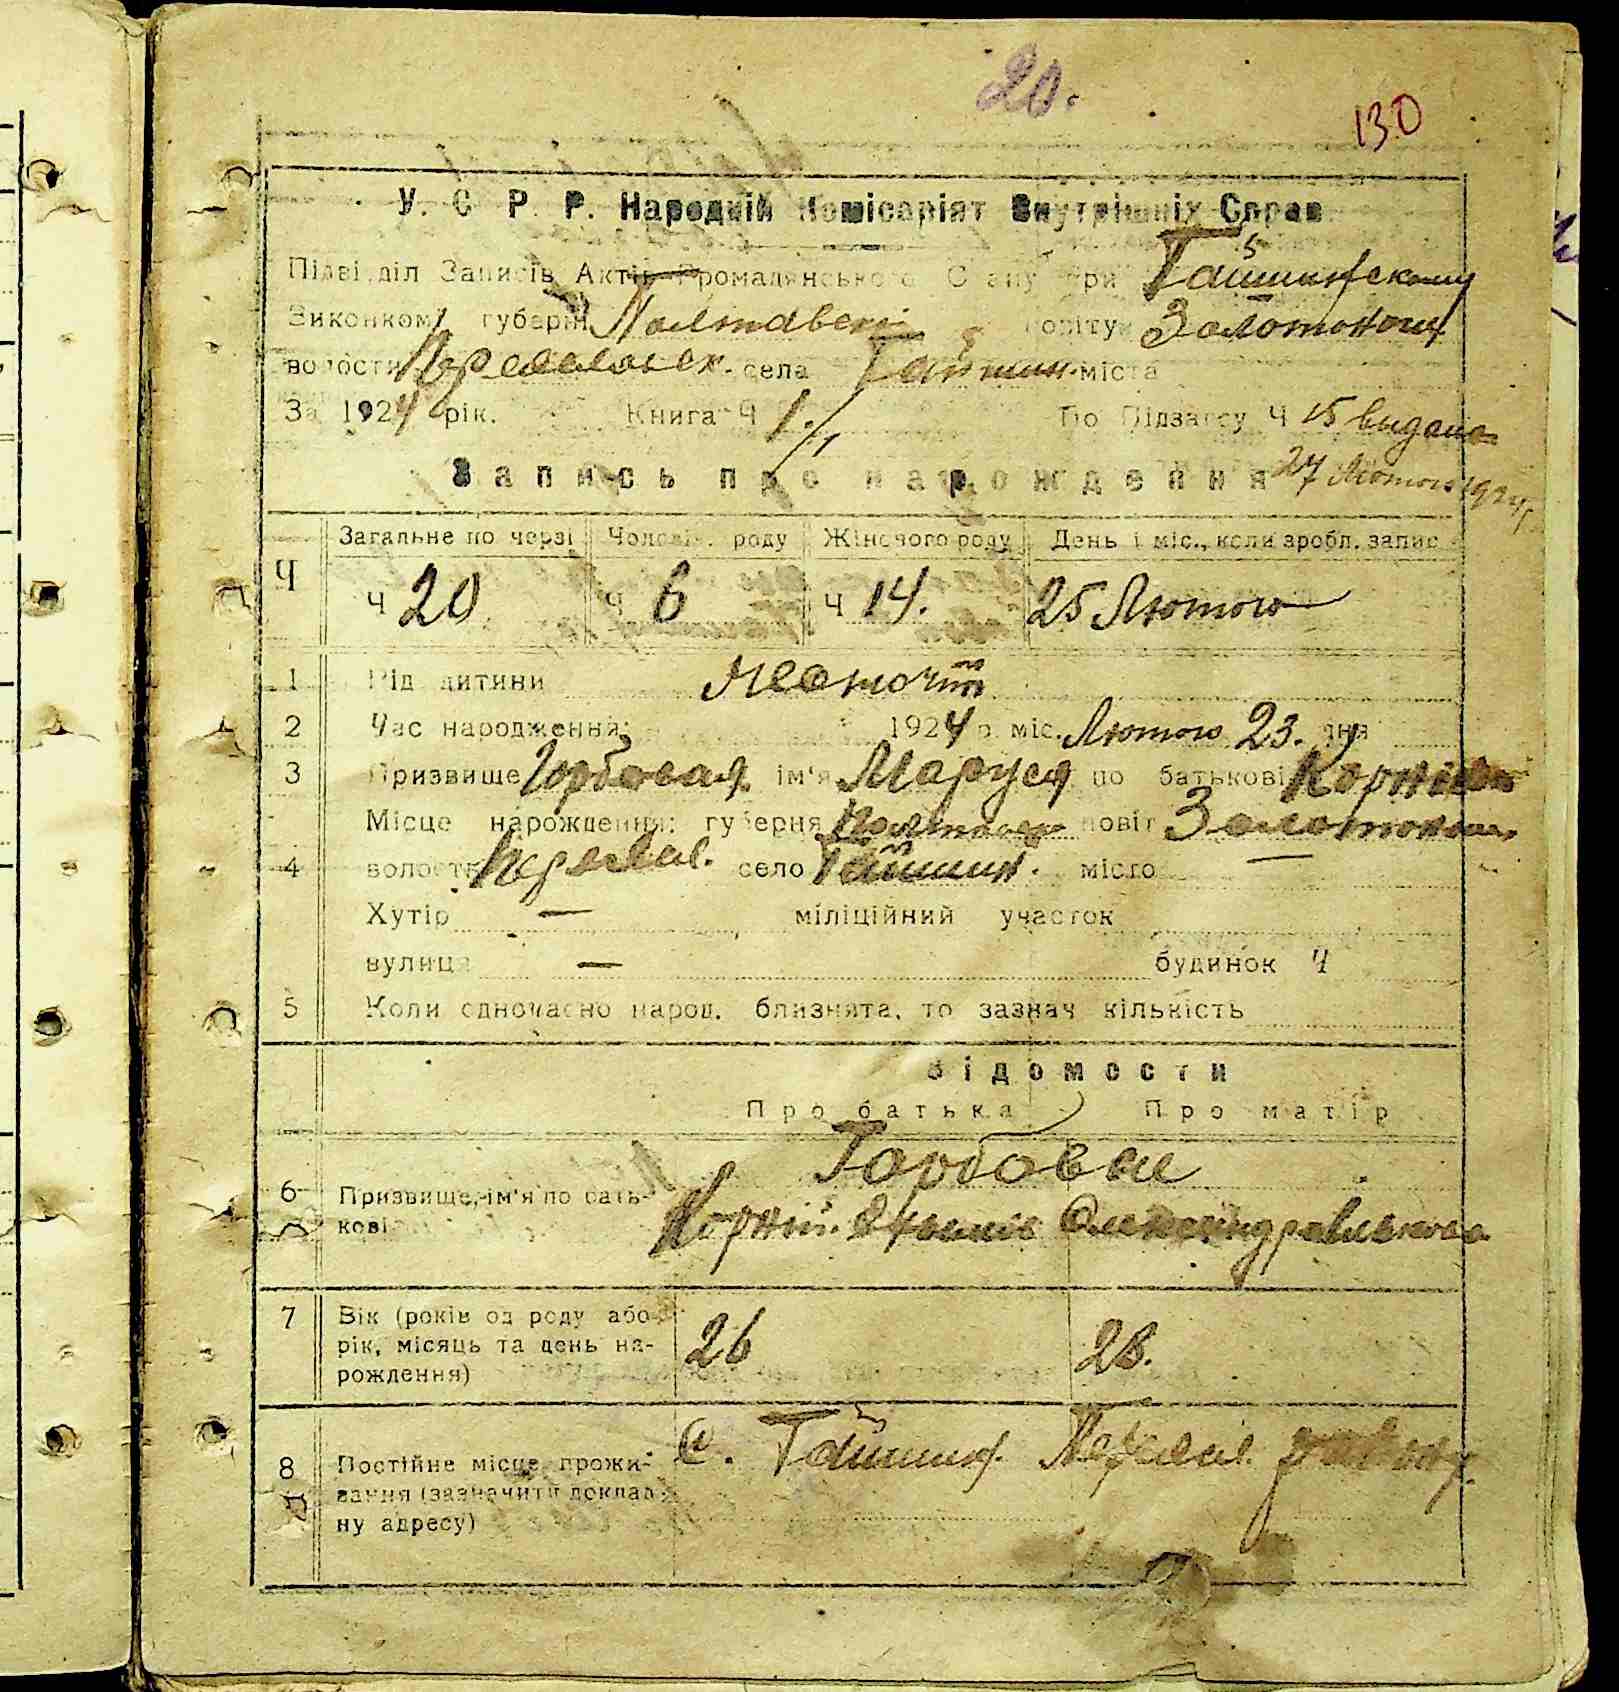 20.
130
У. С. Р. Р. Народній Комісаріят Внутрішніх Справ
Підвідділ Записів Актів Громадянського Стану при Гайшинському
Виконкомі губерні Полтавські повіту Золотонош
волости Переяславск. села Гайшин. міста
За 1924 рік. Книга Ч 1. По Підзагсу Ч 15 видана
27 Лютого 1924 г
Запись про народження
Загальне по черзі Чоловіч. роду Жіночого роду День і міс., коли зробл. запис
Ч Ч 20 Ч 6 Ч 14. 25 Лютого
1 Рід дитини жіночій
2 Час народження: 1924 р. міс. Лютого 23. дня
3 Призвище Горбовая ім'я Маруся по батькові Корніїв
Місце нарождення: губерня Полтавск повіт Золотонош
4 волость Переясл. село Гайшин. місто —
Хутір — міліційний участок
вулиця — будинок Ч
5 Коли одночасно народ. близнята, то зазнач кількість
Відомости
Про батька Про матір
Горбовы
6 Призвище, ім'я по бать-
кові Корній Якимів Олександра
7 Вік (років од роду або
рік, місяць та день на-
рождення) 26 28.
8 Постійне місце прожи-
вання (зазначити доклад-
ну адресу) С. Гайшин. Переясл. району.